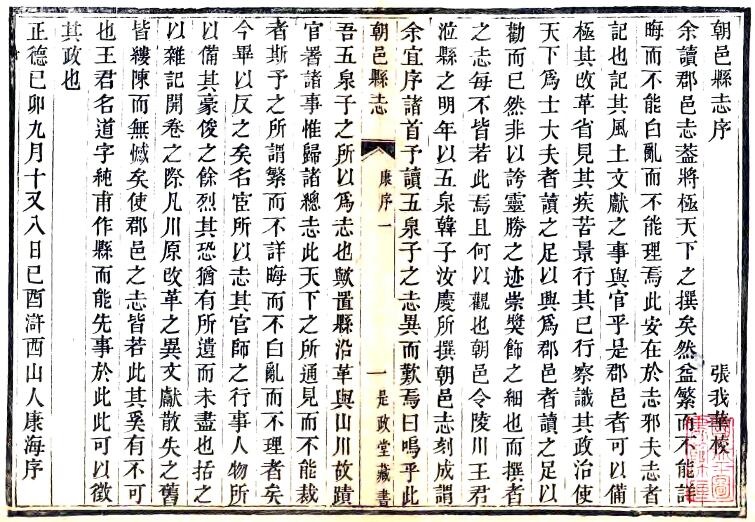 朝邑縣志序
張我華校
余讀郡邑志葢將極天下之撰矣然益繁而不能詳
晦而不能白亂而不能理焉此安在於志邪夫志者
記也記其風土文獻之事與官乎是郡邑者可以備
極其改革省見其疾苦景行其已行察識其政治使
天下爲士大夫者讀之足以興爲郡邑者讀之足以
勸而已然非以誇靈勝之迹崇奬飾之細也而撰者
之志每不皆若此焉且何以觀也朝邑令陵川王君
涖縣之明年以五泉韓子汝慶所撰朝邑志刻成謂
余宜序諸首予讀五泉子之志異而歎焉曰嗚乎此
朝邑縣志
康序 一
一 是政堂藏書
吾五泉子之所以爲志也歟置縣沿革與山川故蹟
官署諸事惟歸諸總志此天下之所通見而不能裁
者斯予之所謂繁而不詳晦而不白亂而不理者矣
今畢以反之矣名宦所以志其官師之行事人物所
以備其豪俊之餘烈其恐猶有所遺而未盡也括之
以雜記開卷之際凡川原改革之異文獻散失之舊
皆縷陳而無憾矣使郡邑之志皆若此其奚有不可
也王君名道字純甫作縣而能先事於此此可以徵
其政也
正德己卯九月十又八日己酉滸西山人康海序